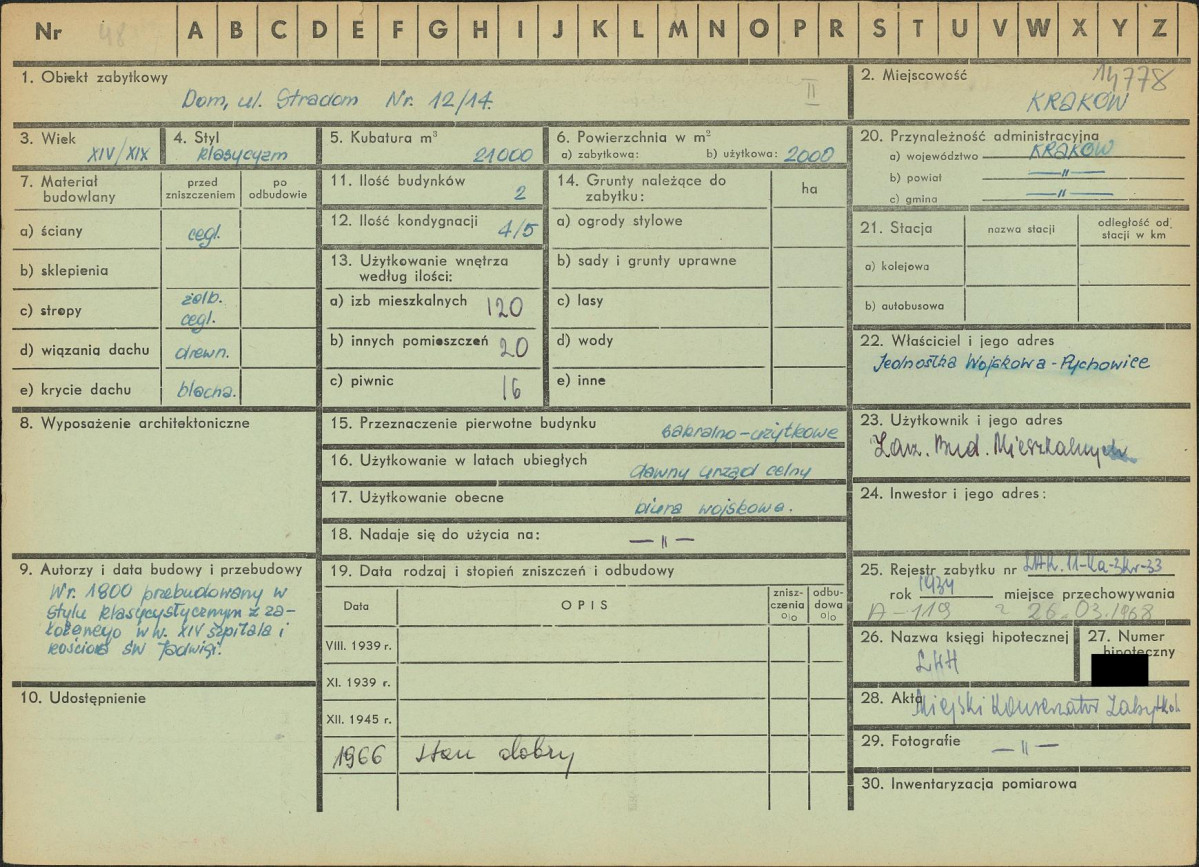 Nr 48 A B C D E F G H I J K L M N O P R S T U V W X Y Z
1. Obiekt zabytkowy
Dom, ul. Stradom Nr. 12/14. II
2. Miejscowość 14778
KRAKÓW
3. Wiek
XIV/XIX
4. Styl
klasycyzm
5. Kubatura m³
21000
6. Powierzchnia w m²
a) zabytkowa: b) użytkowa: 2000
20. Przynależność administracyjna
a) województwo KRAKÓW
b) powiat —"—
c) gmina —"—
7. Materiał budowlany
przed zniszczeniem
po odbudowie
a) ściany cegl.
b) sklepienia
c) stropy żelb. cegl.
d) wiązania dachu drewn.
e) krycie dachu blacha.
11. Ilość budynków 2
12. Ilość kondygnacji 4/5
13. Użytkowanie wnętrza
według ilości:
a) izb mieszkalnych 120
b) innych pomieszczeń 20
c) piwnic 16
14. Grunty należące do
zabytku: ha
a) ogrody stylowe
b) sady i grunty uprawne
c) lasy
d) wody
e) inne
21. Stacja nazwa stacji
odległość od
stacji w km
a) kolejowa
b) autobusowa
22. Właściciel i jego adres
Jednostka Wojskowa - Pychowice
8. Wyposażenie architektoniczne
15. Przeznaczenie pierwotne budynku sakralno-użytkowe
16. Użytkowanie w latach ubiegłych dawny urząd celny
17. Użytkowanie obecne biura wojskowe.
18. Nadaje się do użycia na: —"—
23. Użytkownik i jego adres
Zarz. Bud. Mieszkalnych
24. Inwestor i jego adres:
9. Autorzy i data budowy i przebudowy
Wr. 1800 przebudowany w
stylu klasycystycznym z za-
łożonego w w. XIV szpitala i
kościoła św Jadwigi.
10. Udostępnienie
19. Data rodzaj i stopień zniszczeń i odbudowy
Data OPIS
znisz-
czenia
%
odbu-
dowa
%
VIII. 1939 r.
XI. 1939 r.
XII. 1945 r.
1966 stan dobry
25. Rejestr zabytku nr
rok 1934 miejsce przechowywania
A-119 z 26.03.1968
26. Nazwa księgi hipotecznej
27. Numer
hipoteczny
28. Akta Miejski Konserwator Zabytków
29. Fotografie —"—
30. Inwentaryzacja pomiarowa